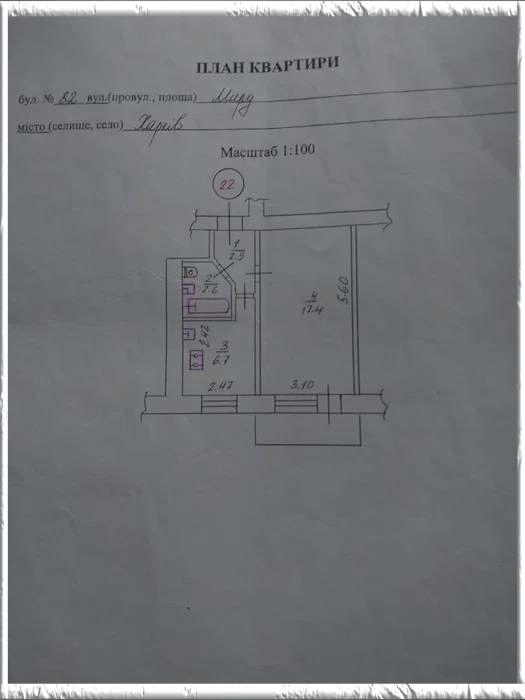 ПЛАН КВАРТИРИ
буд. № 82 вул.(провул., площа) Миру
місто (селище, село) Харків
Масштаб 1:100
22
1
2.9
2
2.6
4
17.4
5.60
2.42
3
6.7
2.47
3.10